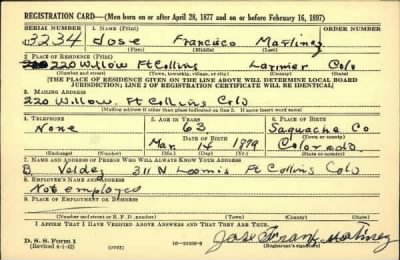 REGISTRATION CARD—(Men born on or after April 28, 1877 and on or before February 16, 1897)
SERIAL NUMBER 1. NAME (Print)
3234 Jose Francisco Martinez
(First) (Middle) (Last)
ORDER NUMBER
2. PLACE OF RESIDENCE (Print)
220 Willow Ft Collins Larimer Colo
(Number and street) (Town, township, village, or city) (County) (State)
[THE PLACE OF RESIDENCE GIVEN ON THE LINE ABOVE WILL DETERMINE LOCAL BOARD
JURISDICTION; LINE 2 OF REGISTRATION CERTIFICATE WILL BE IDENTICAL]
3. MAILING ADDRESS
220 Willow Ft Collins Colo
[Mailing address if other than place indicated on line 2. If same insert word same]
4. TELEPHONE 5. AGE IN YEARS 6. PLACE OF BIRTH
None 63 Saguache Co
DATE OF BIRTH (Town or county)
Mar 14 1879 Colorado
(Exchange) (Number) (Mo.) (Day) (Yr.) (State or country)
7. NAME AND ADDRESS OF PERSON WHO WILL ALWAYS KNOW YOUR ADDRESS
B. Valdez 311 N Loomis Ft Collins Colo
8. EMPLOYER'S NAME AND ADDRESS
Not employed
9. PLACE OF EMPLOYMENT OR BUSINESS
(Number and street or R. F. D. number) (Town) (County) (State)
I AFFIRM THAT I HAVE VERIFIED ABOVE ANSWERS AND THAT THEY ARE TRUE.
D. S. S. Form 1
(Revised 4-1-42) (over)
Jose Frank Martinez
(Registrant's signature)